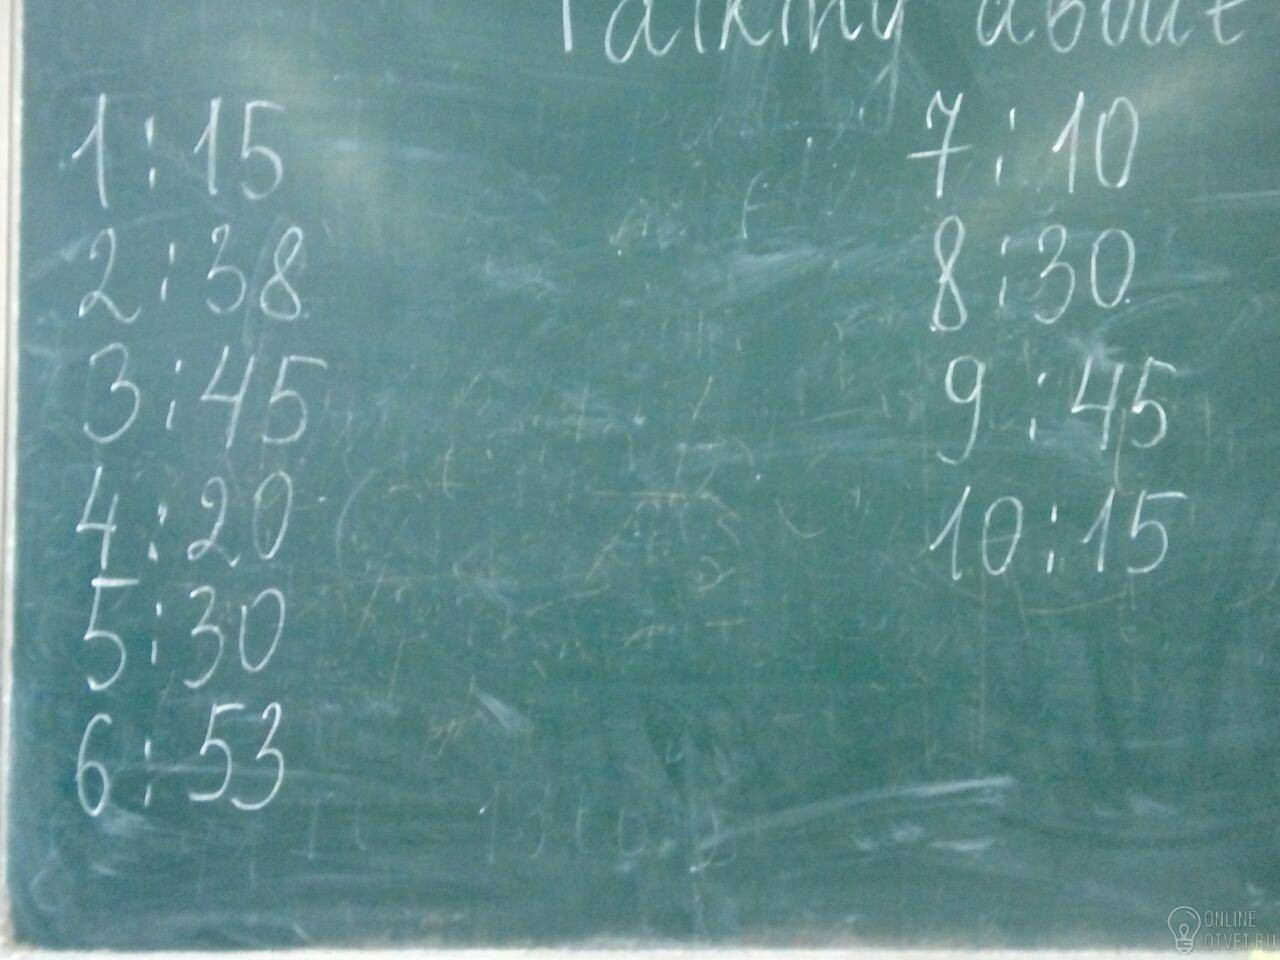 Talking about
1:15
2:38
3:45
4:20
5:30
6:53
7:10
8:30
9:45
10:15
ONLINE
OTVET.RU